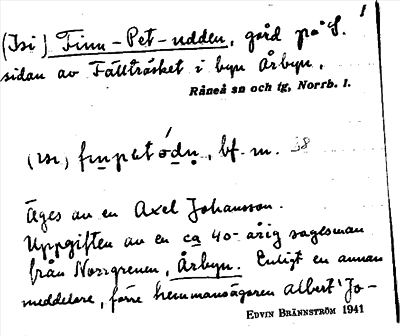 1
(Isi) Finn-Pet-udden, gård på S.
sidan av Fällträsket i byn Årbyn.
Råneå sn och tg, Norrb. l.
bf. m.
Äges av en Axel Johansson.
Uppgiften av en ca 40-årig sagesman
från Norrgrenen, Årbyn. Enligt en annan
meddelare, förre hemmansägaren Albert Jo-
EDVIN BRÄNNSTRÖM 1941